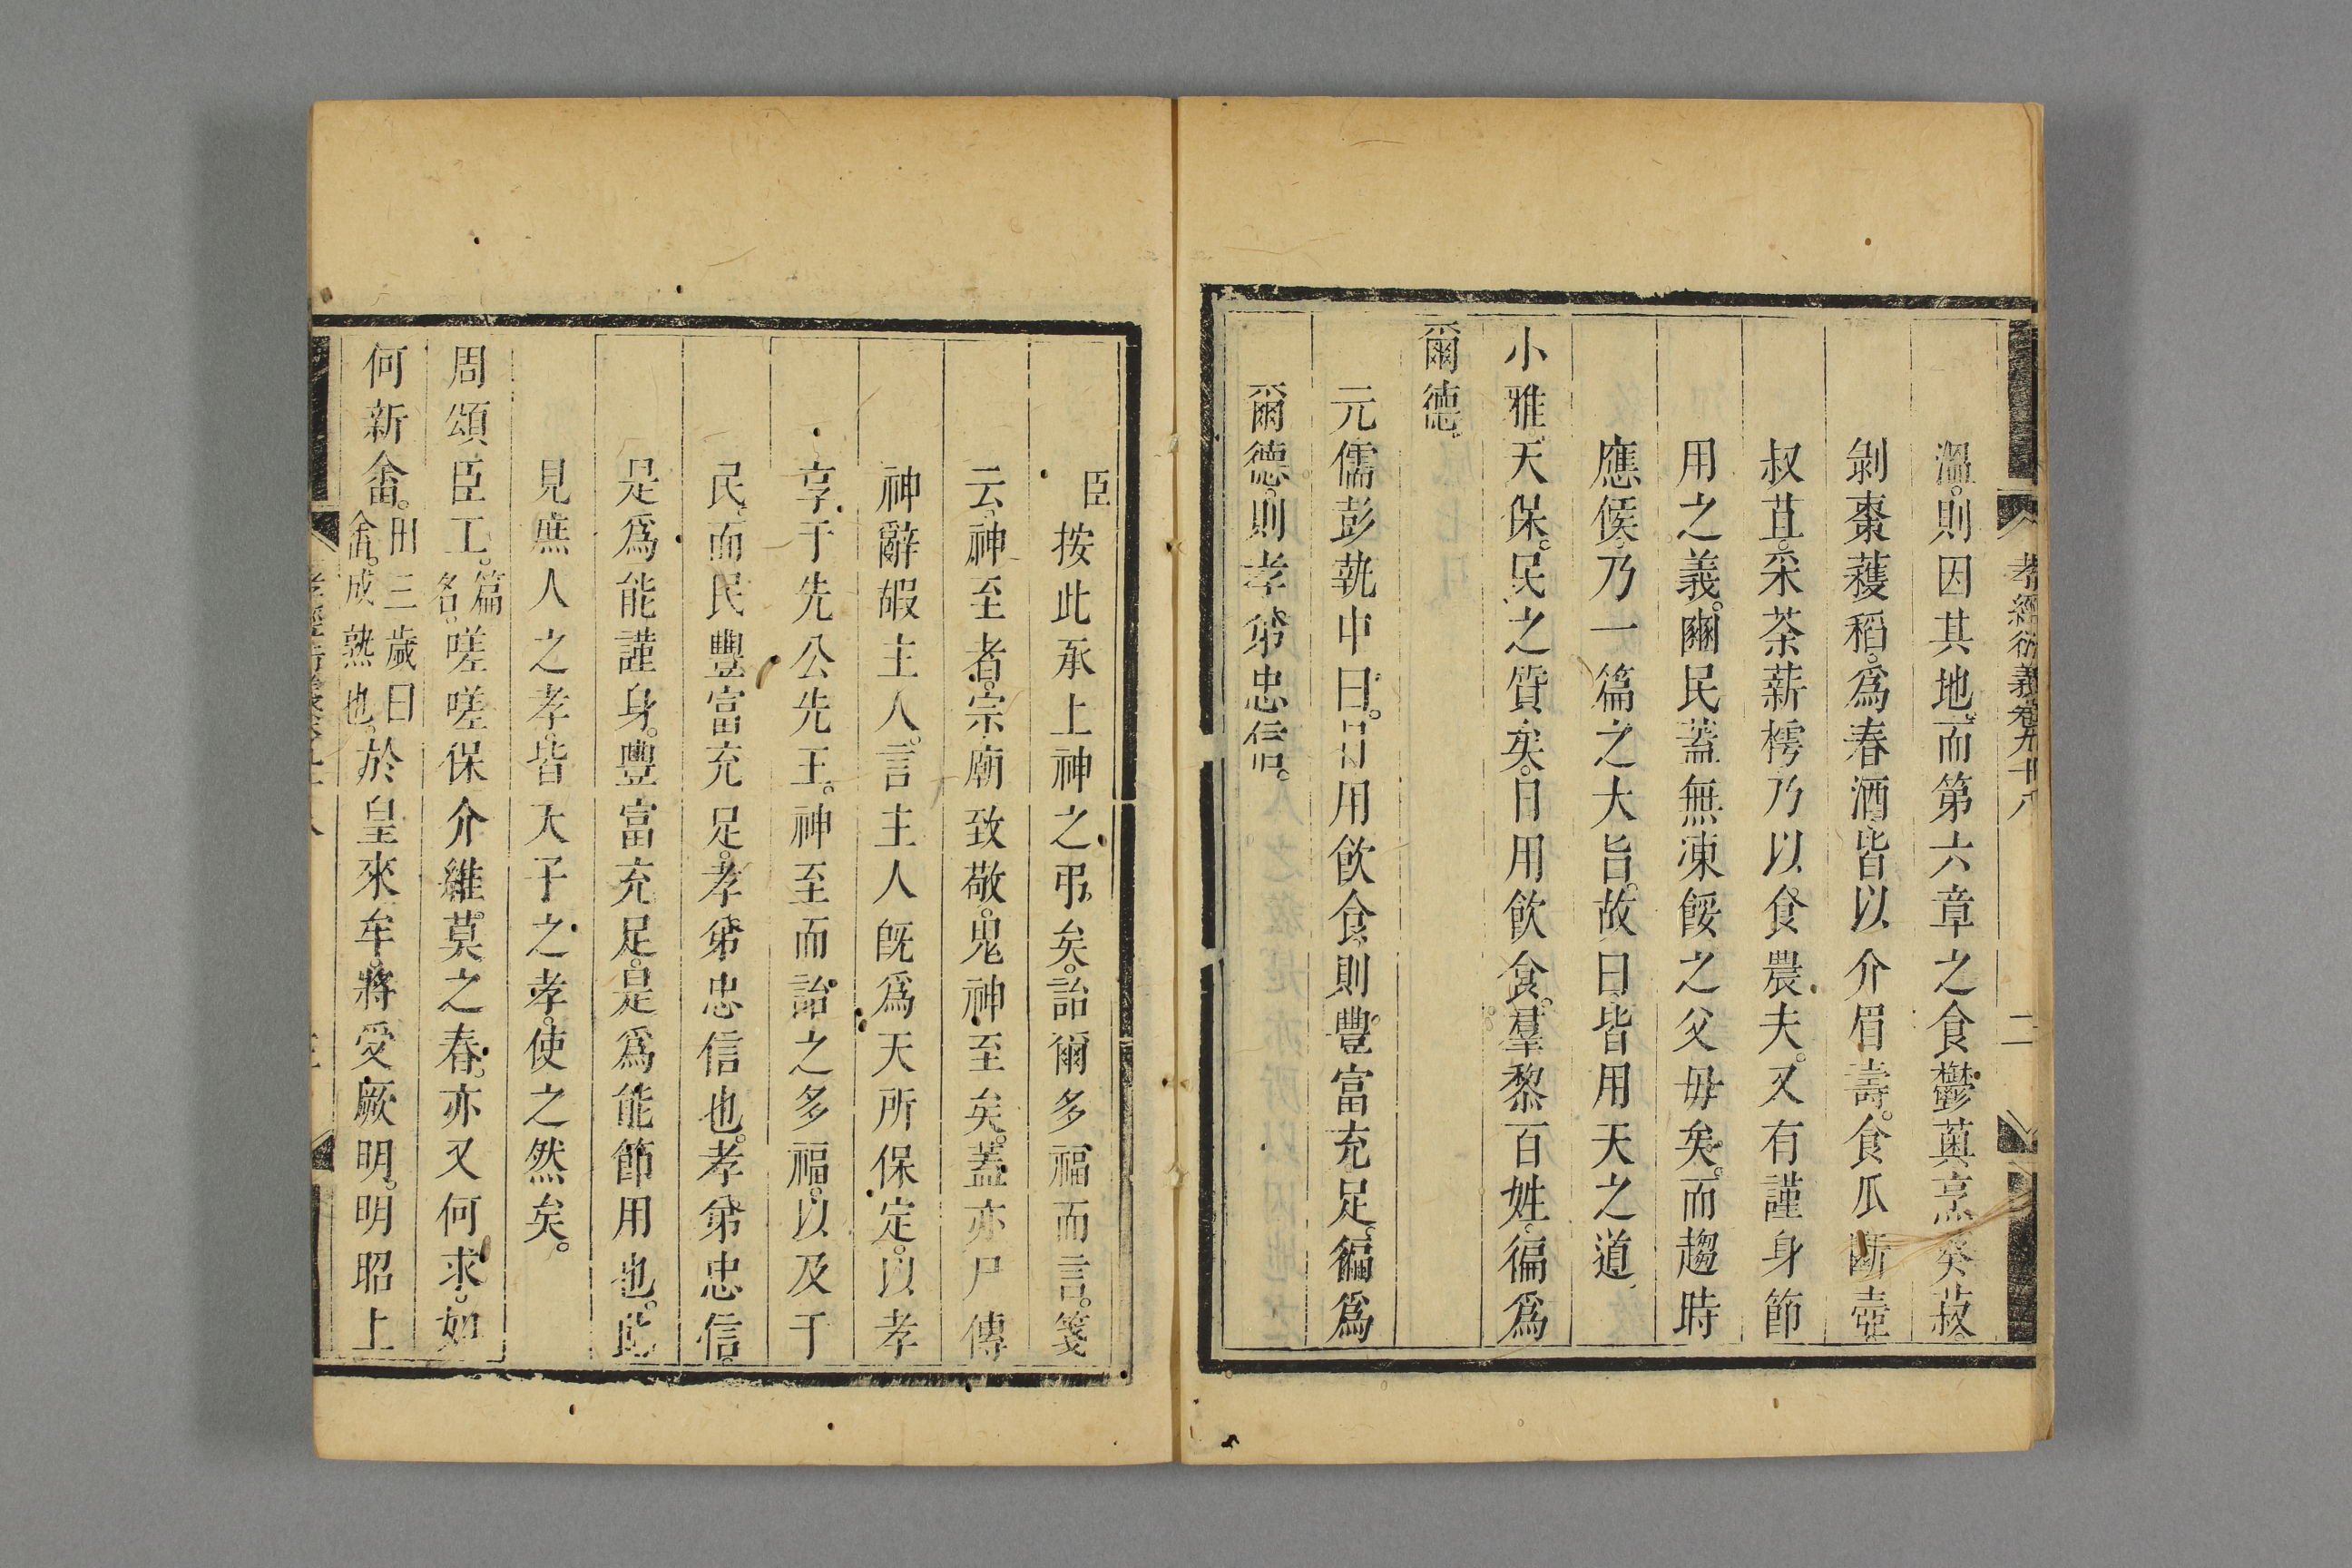 孝經衍義卷九十八 二
溫。則因其地。而第六章之食鬱薁。烹葵菽。
剝棗。穫稻。爲春酒。皆以介眉壽。食瓜。斷壺。
叔苴。采荼。薪樗。乃以食農夫。又有謹身節
用之義。豳民蓋無凍餒之父母矣。而趨時
應候。乃一篇之大旨。故曰皆用天之道。
小雅。天保。民之質矣。日用飲食。羣黎百姓。徧爲
爾德。
元儒彭執中曰。日用飲食。則豐富充足。徧爲
爾德。則孝弟忠信。
臣按此承上神之弔矣。詒爾多福而言。箋
云。神至者。宗廟致敬。鬼神至矣。蓋亦尸傳
神辭嘏主人。言主人旣爲天所保定。以孝
享于先公先王。神至而詒之多福。以及于
民。而民豐富充足。孝弟忠信也。孝弟忠信。
是爲能謹身。豐富充足。是爲能節用也。此
見庶人之孝。皆天子之孝。使之然矣。
周頌臣工。篇名。嗟嗟保介。維莫之春。亦又何求。如
何新畬。田三歲曰畬。成熟也。於皇來牟。將受厥明。明昭上